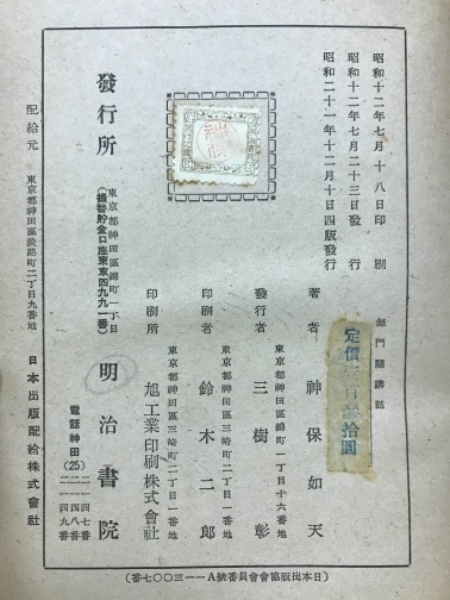 昭和十二年七月十八日印刷
昭和十二年七月二十三日發行
昭和二十一年十二月十日四版發行
無門關講話
定價
拾圓
著者 神保如天
東京都神田區錦町一丁目十六番地
發行者 三樹彰
東京都神田區三崎町二丁目一番地
印刷者 鈴木二郎
東京都神田區三崎町二丁目一番地
印刷所 旭工業印刷株式會社
發行所 東京都神田區錦町一丁目
(振替貯金口座東京四九九一番)
明治書院
電話神田(25)
二一四七番
二一四八番
二一四九番
配給元 東京都神田區淡路町二丁目九番地 日本出版配給株式會社
(日本出版協會會員番號A一一三〇〇七番)